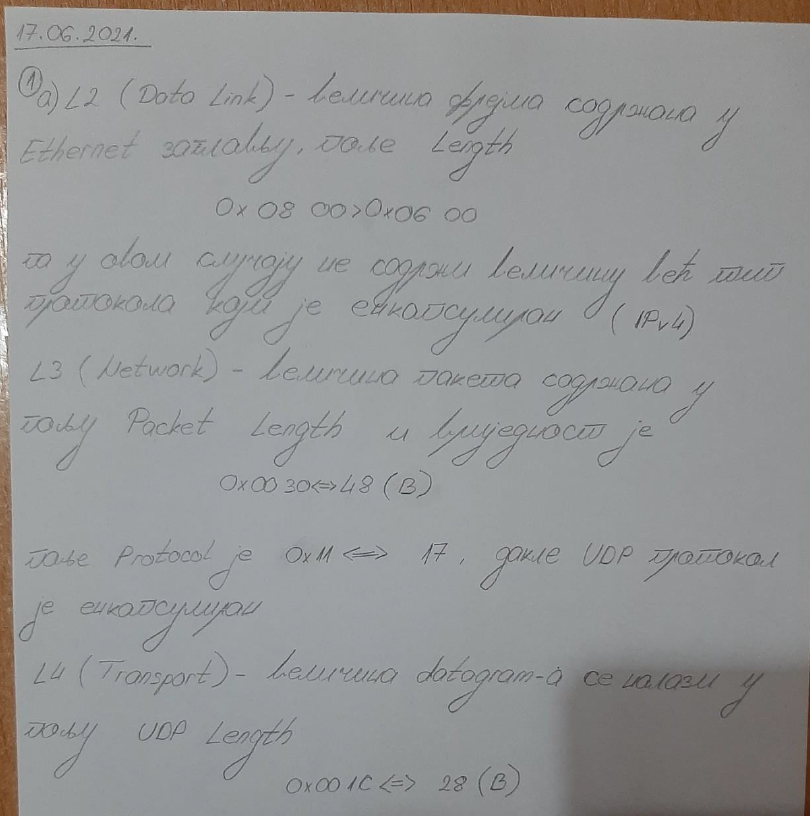 17.06.2021.
① а) L2 (Data Link) - величина фрејма садржана у
Ethernet заглављу, поље Length
0x 08 00>0x06 00
па у овом случају не садржи величину већ тип
протокола који је енкапсулиран (IPv4)
L3 (Network) - величина пакета садржана у
пољу Packet Length и вриједност је
0x00 30<=>48 (B)
поље Protocol је 0x11 <=> 17, дакле UDP протокол
је енкапсулиран
L4 (Transport) - величина datagram-а се налази у
пољу UDP Length
0x00 1C <=> 28 (B)